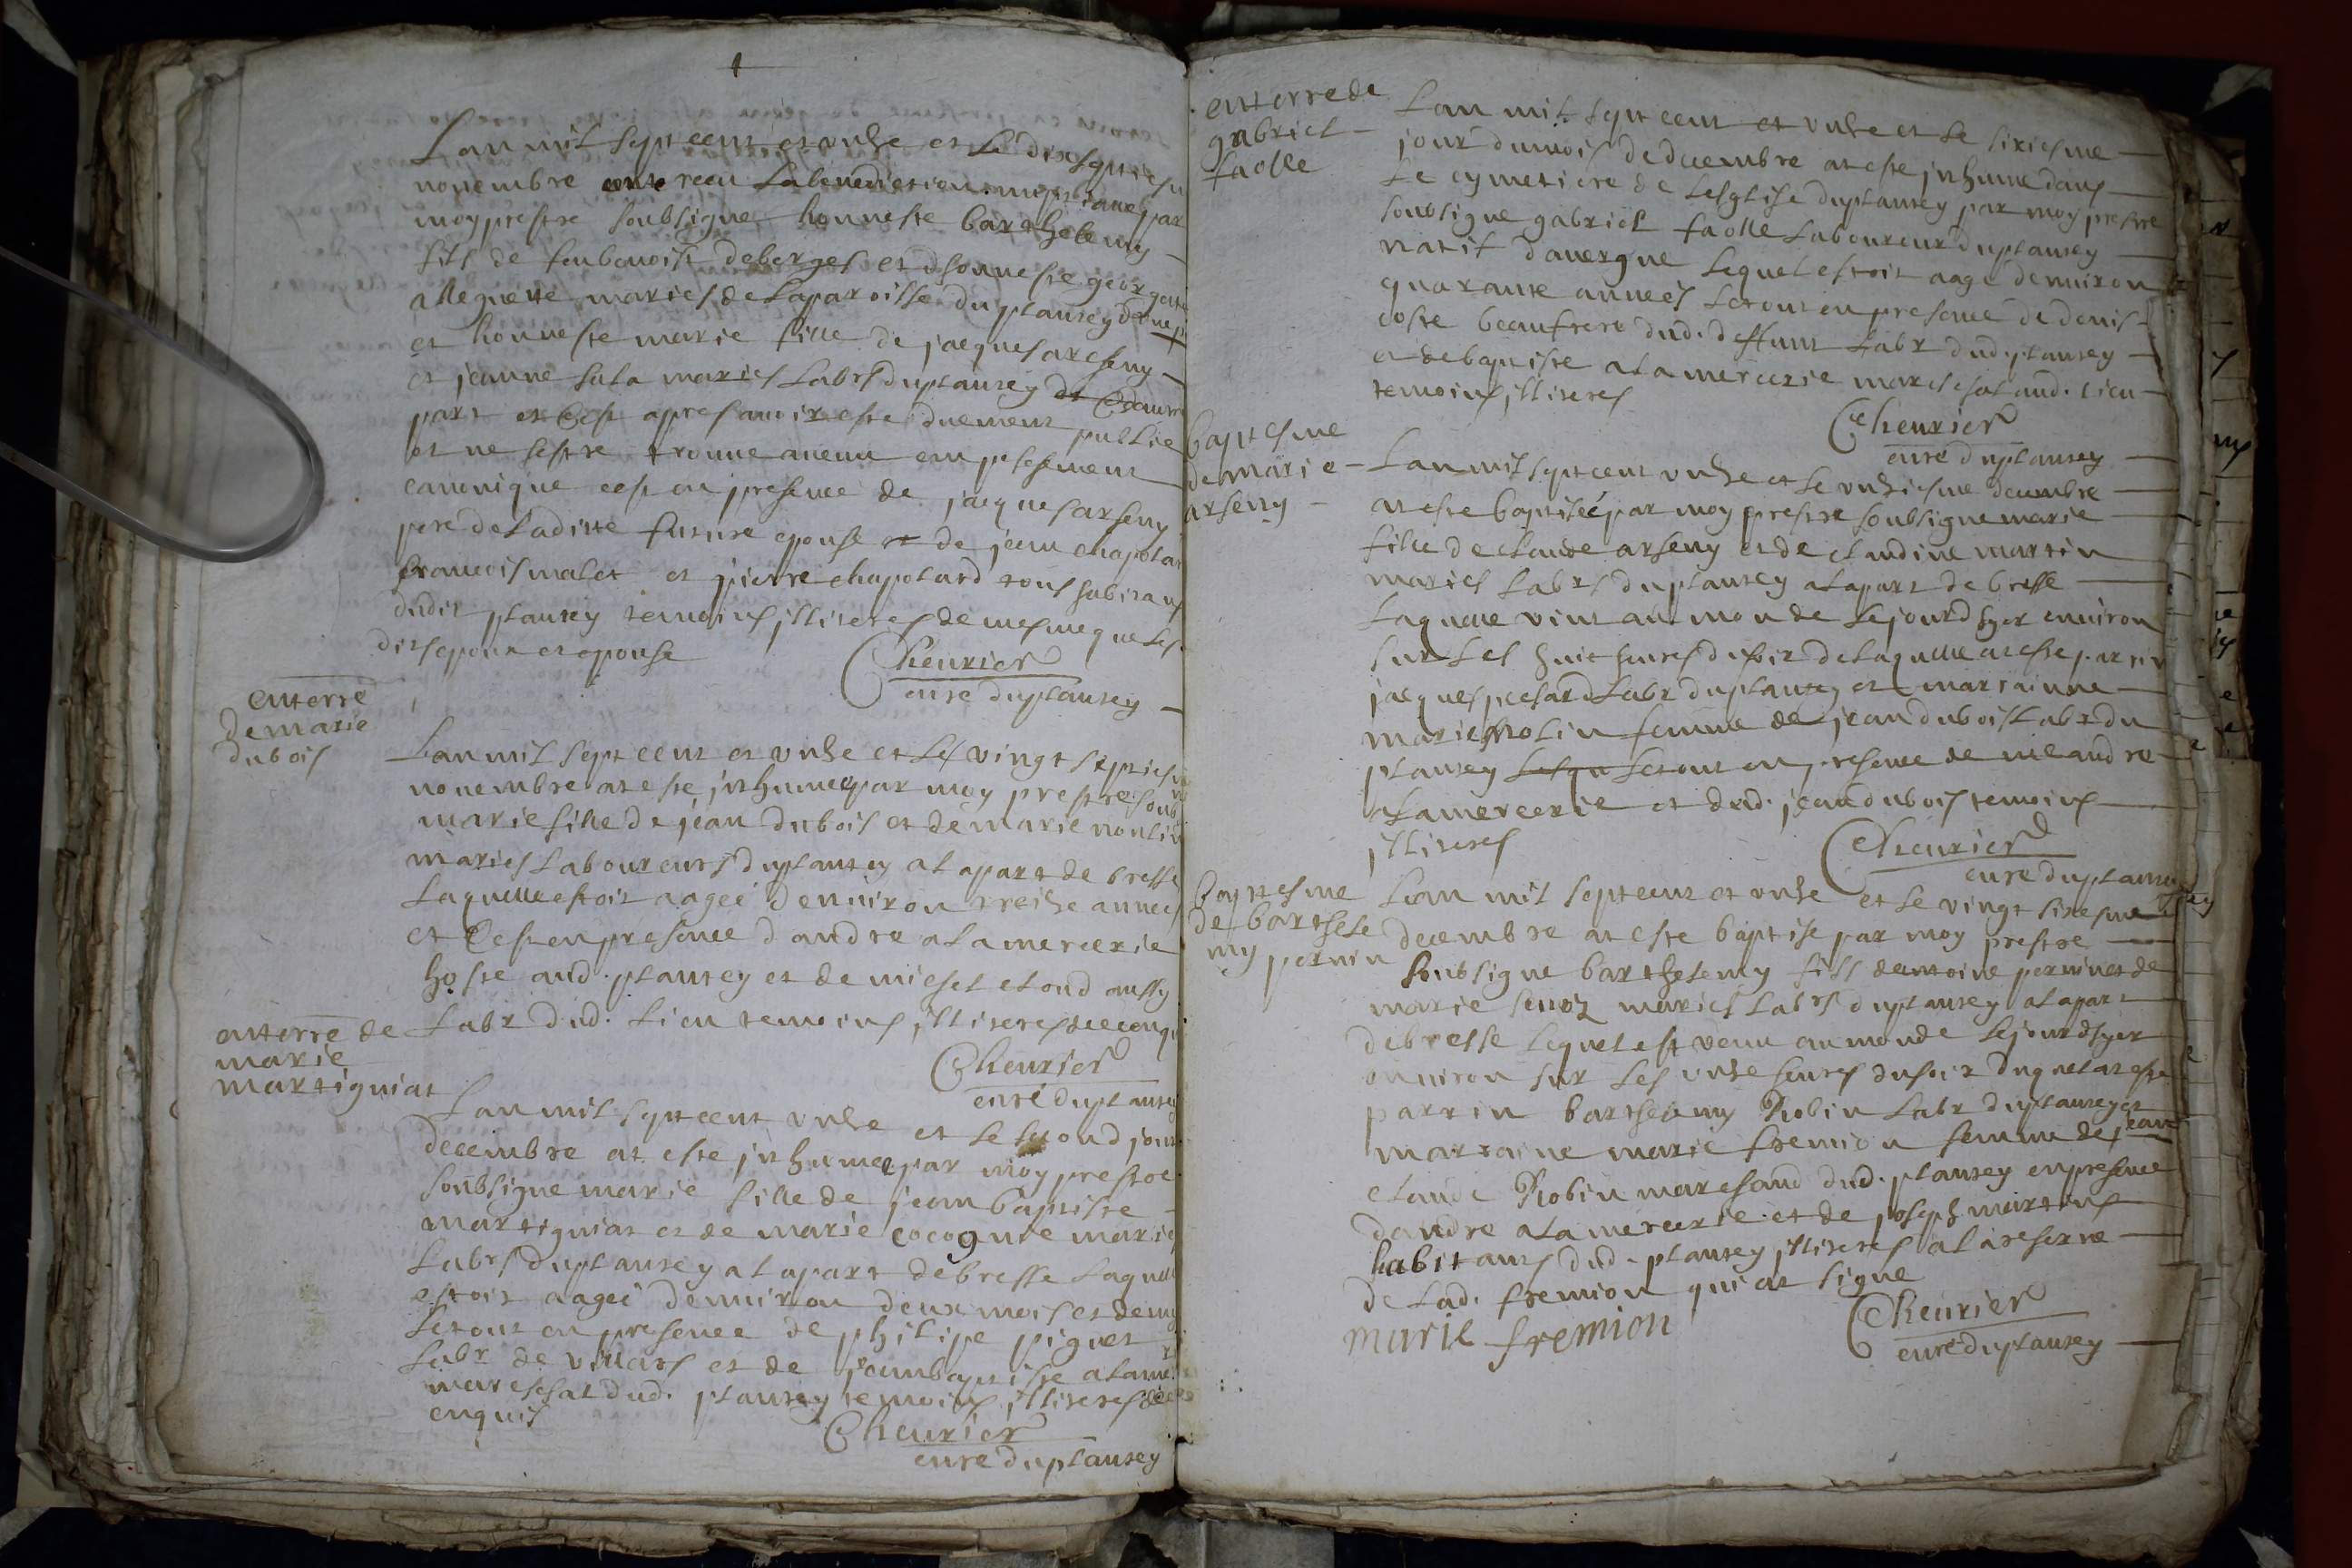 Lan mil sept cent et unse et le dixseptiesme
novembre ont receu la benediction nuptiale par
moy prestre soubsigne honneste barthelemy
fils de feu benoist deberges et dhonneste georgette
alleguette maries de la paroisse du plantey dune p
et honneste marie fille de jacques arseny
et jeanne sala maries labrs du plantey dautre
part et c'est apres avoir este duement publie
et ne sestre trouve aucun empeschement
canonique cest en presence de jacques arseny
pere de laditte future epouse et de jean chapolar
francois malet et pierre chapolard tous habitans
dudit plantey temoins illiteres de mesme que les
dits epoux et epouse
Cheurier
curé du plantey
enterre
de marie
dubois
Lan mil sept cent et unse et les vingt septiesme
novembre at este inhumee par moy prestre soub
marie fille de jean dubois et de marie moulin
maries laboureurs du plantey a la part de bresse
laquelle estoit aagee denviron treise annees
et c'est en presence dandre alamercerie
hoste aud. plantey et de michel clond aussy
labr dud. lieu temoins illiteres de ce enquis
Cheurier
curé du plantey
enterre de
marie
martigniat
Lan mil sept cent unse et le second jour
decembre at este inhumee par moy prestre
soubsigne marie fille de jean baptiste
martigniat et de marie cocogne maries
labrs du plantey a la part de bresse laquelle
estoit aagee denviron deux mois et demy
le tout en presence de philipe piguet
labr de villars et de jean baptiste alamer
mareschal dud. plantey temoins illiteres de ce
enquis
Cheurier
curé du plantey
enterre de
gabriel
faolle
Lan mil sept cent et unse et le sixiesme
jour du mois de decembre at este inhume dans
le cymetiere de lesglise du plantey par moy prestre
soubsigne gabriel faolle laboureur du plantey
natif dauvergne lequel estoit aage denviron
quarante annees le tout en presence de denis
coste beaufrere dud. deffunt labr dud. plantey
et de baptiste alamercerie mareschal aud. lieu
temoins illiteres
Cheurier
curé du plantey
baptesme
de marie
arseny
Lan mil sept cent unse et le unsiesme decembre
at este baptisée par moy prestre soubsigne marie
fille de claude arseny et de claudine martin
maries labrs du plantey a la part de bresse
laquelle vint au monde le jourdhyer environ
sur les huit heures du soir de laquelle at este parrin
jacques pressard labr du plantey et marrainne
marie molin femme de jean dubois labr du
plantey lesqu le tout en presence de me andre
alamercerie et dud. jean dubois temoins
illiteres
Cheurier
curé du plantey
baptesme
de barthele
my pernin
Lan mil sept cent et unse et le vingt sixiesme
decembre at este baptise par moy prestre
soubsigne barthelemy fils dantoine pernin et de
marie servoz maries labrs du plantey a la part
de bresse lequel est venu au monde le jourdhyer
environ sur les unse heures du soir duquel at este
parrin barthelemy Robin labr du plantey et
marraine marie fremion femme de jean
claude Robin marchand dud. plantey en presence
dandre alamercerie et de joseph martin
habitans dud. plantey illiteres a la reserve
de lad. fremion qui at signe
marie fremion
Cheurier
curé du plantey